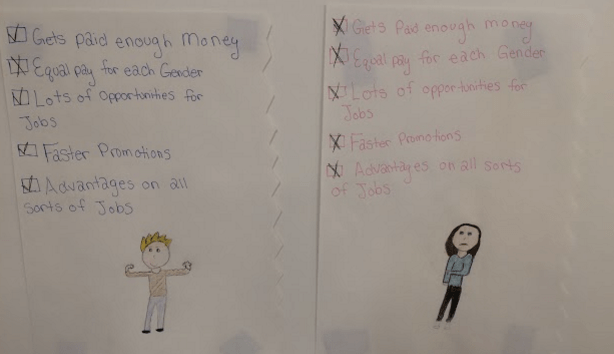 Gets Paid enough Money
Equal pay for each Gender
Lots of Opportunities for
Jobs
Faster Promotions
Advantages on all
sorts of Jobs
Gets Paid enough money
Equal pay for each Gender
Lots of opportunities for
Jobs
Faster Promotions
Advantages on all sorts
of Jobs